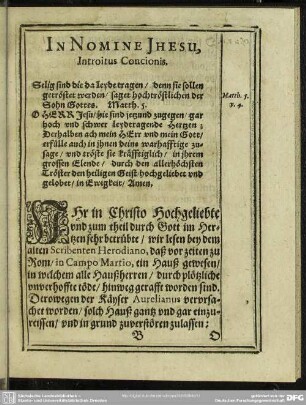 IN NOMINE JHESU,
Introitus Concionis.
Selig sind die da leyde tragen / denn sie sollen
getröstet werden / saget hochtröstlichen der
Sohn Gottes. Matth. 5.
Matth. 5.
v. 4.
O HERR Jesu / hie sind jetzund zugegen / gar
hoch und schwer leydetragende Hertzen;
Derhalben ach mein HErr und mein Gott /
erfülle auch in jhnen deine warhafftige zu-
sage / und tröste sie kräfftiglich / in jhrem
grossen Elende / durch den allerhöchsten
Tröster den heiligen Geist hochgeliebet und
gelobet / in Ewigkeit / Amen.
IHr in Christo Hochgeliebte
vnd zum theil durch Gott im Her-
tzen sehr betrübte / wir lesen bey dem
alten Scribenten Herodiano, daß vor zeiten zu
Rom / in Campo Martio, ein Hauß gewesen /
in welchem alle Haußherren / durch plötzliche
vnverhoffte töde / hinweg gerafft worden sind.
Derowegen der Käyser Aurelianus vervrsa-
chet worden / solch Hauß gantz vnd gar einzu-
reissen / vnd in grund zuverstören zulassen:
B